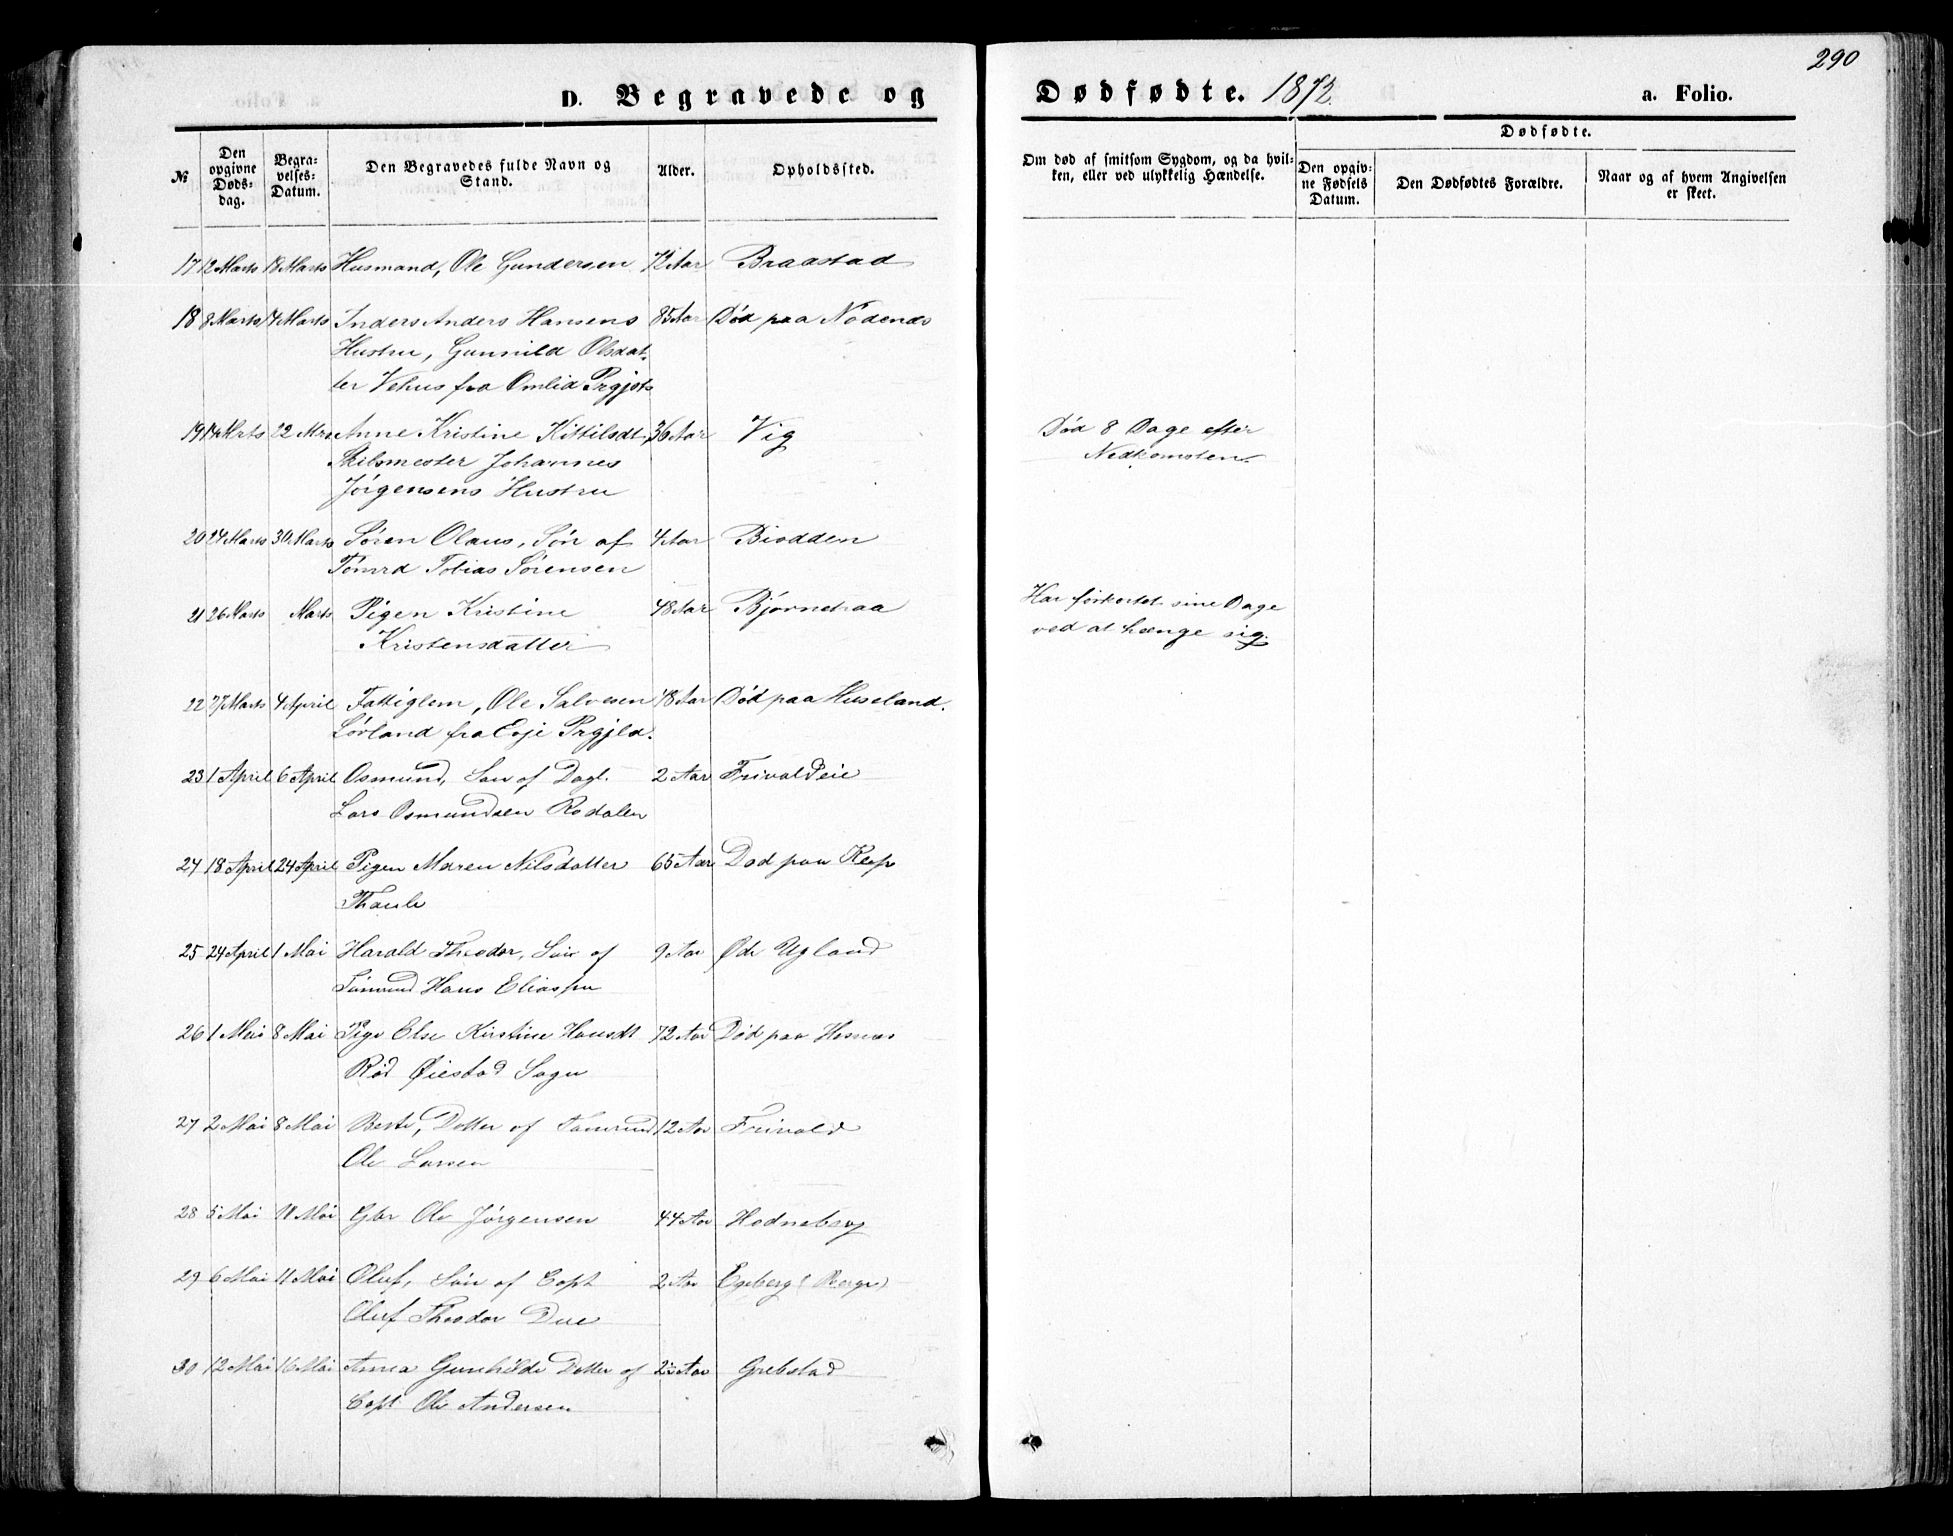 290
D. Begravede og Dødfødte. 1872. a. Folio.
№
Den opgivne Døds-dag.
Begra-velses-Datum.
Den Begravedes fulde Navn og Stand.
Alder.
Opholdssted.
Om død af smitsom Sygdom, og da hvil-ken, eller ved ulykkelig Hændelse.
Dødfødte.
Den opgiv-ne Fødsels Datum.
Den Dødfødtes Forældre.
Naar og af hvem Angivelsen er skeet.
17 12 Marts 18 Marts Husmand, Ole Gundersen 72 Aar Braastad
18 8 Marts 14 Marts Inders Anders Hansens 85 Aar Død paa Nødenes
Hustru, Gunnild Olsdat-
ter Vehus fra Omlid Prgjæld
19 14 Mrts 22 Mrs Anne Kristine Kittilsdt, 36 Aar Vig Død 8 Dage efter
Skibsmester Johannes Nedkomsten.
Jørgensens Hustru
20 24 Marts 30 Marts Søren Olaus, Søn af 4 Aar Biodden
Tømrd Tobias Sørensen
21 26 Marts Marts Pigen Kristine 48 Aar Bjørnetraa Har forkortet sine Dage
Kristensdatter ved at hænge sig.
22 27 Marts 4 April Fattiglem, Ole Salvesen 48 Aar Død paa Huseland.
Sørland fra Evje Prgjld.
23 1 April 6 April Osmund, Søn af Dagl. 2 Aar Frivold eie
Lars Osmundsen Rødalen
24 18 April 24 April Pigen Maren Nilsdatter 65 Aar Død paa
25 24 April 1 Mai Harald Theodor, Søn af 9 Aar Øde Ugland
Tømmd Hans Eliassen
26 1 Mai 8 Mai Pige Else Kirstine Hansdt 72 Aar Død paa Hesnæs
Rød Øiestad Sogn
27 2 Mai 8 Mai Berte, Datter af Tømmd 12 Aar Frivold
Ole Larsen
28 5 Mai 11 Mai Gbr Ole Jørgensen 44 Aar Hodneberg
29 6 Mai 11 Mai Oluf, Søn af Capt 2 Aar Egeberg (Berge)
Oluf Theodor Due
30 12 Mai 16 Mai Anna Gunhilde Datter af 2 Aar Grebstad
Capt Ole Andersen